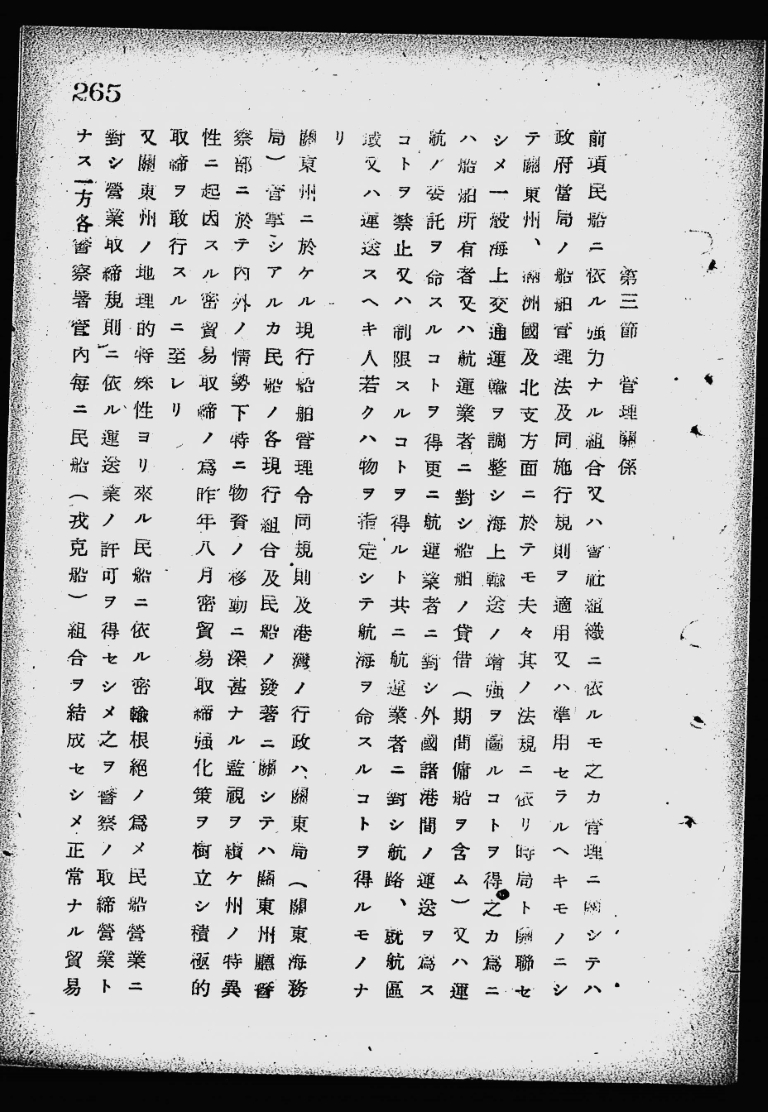 265
第三節　管理關係
前項民船ニ依ル强力ナル組合又ハ會社組織ニ依ルモ之カ管理ニ關シテハ
政府當局ノ船舶管理法及同施行規則ヲ適用又ハ準用セラルヘキモノニシ
テ關東州、滿洲國及北支方面ニ於テモ夫々其ノ法規ニ依リ時局ト關聯セ
シメ一般海上交通運輸ヲ調整シ海上輸送ノ增强ヲ圖ルコトヲ得之カ爲ニ
ハ船舶所有者又ハ航運業者ニ對シ船舶ノ貸借（期間傭船ヲ含ム）又ハ運
航ノ委託ヲ命スルコトヲ得更ニ航運業者ニ對シ外國諸港間ノ運送ヲ爲ス
コトヲ禁止又ハ制限スルコトヲ得ルト共ニ航運業者ニ對シ航路、就航區
域又ハ運送スヘキ人若クハ物ヲ指定シテ航海ヲ命スルコトヲ得ルモノナ
リ
關東州ニ於ケル現行船舶管理令同規則及港灣ノ行政ハ關東局（關東海務
局）管掌シアルカ民船ノ各現行組合及民船ノ發著ニ關シテハ關東州廳警
察部ニ於テ內外ノ情勢下特ニ物資ノ移動ニ深甚ナル監視ヲ續ケ州ノ特異
性ニ起因スル密貿易取締ノ爲昨年八月密貿易取締强化策ヲ樹立シ積極的
取締ヲ敢行スルニ至レリ
又關東州ノ地理的特殊性ヨリ來ル民船ニ依ル密輸根絕ノ爲メ民船營業ニ
對シ營業取締規則ニ依ル運送業ノ許可ヲ得セシメ之ヲ警察ノ取締營業ト
ナス一方各警察署管內每ニ民船（戎克船）組合ヲ結成セシメ正常ナル貿易